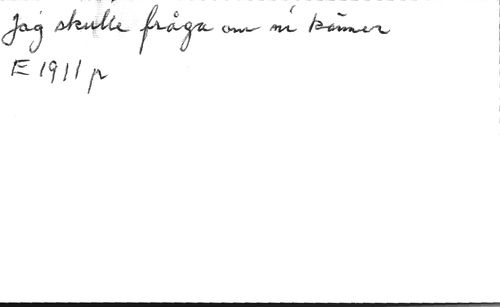 Jag skulle fråga om ni känner
E 1911 p